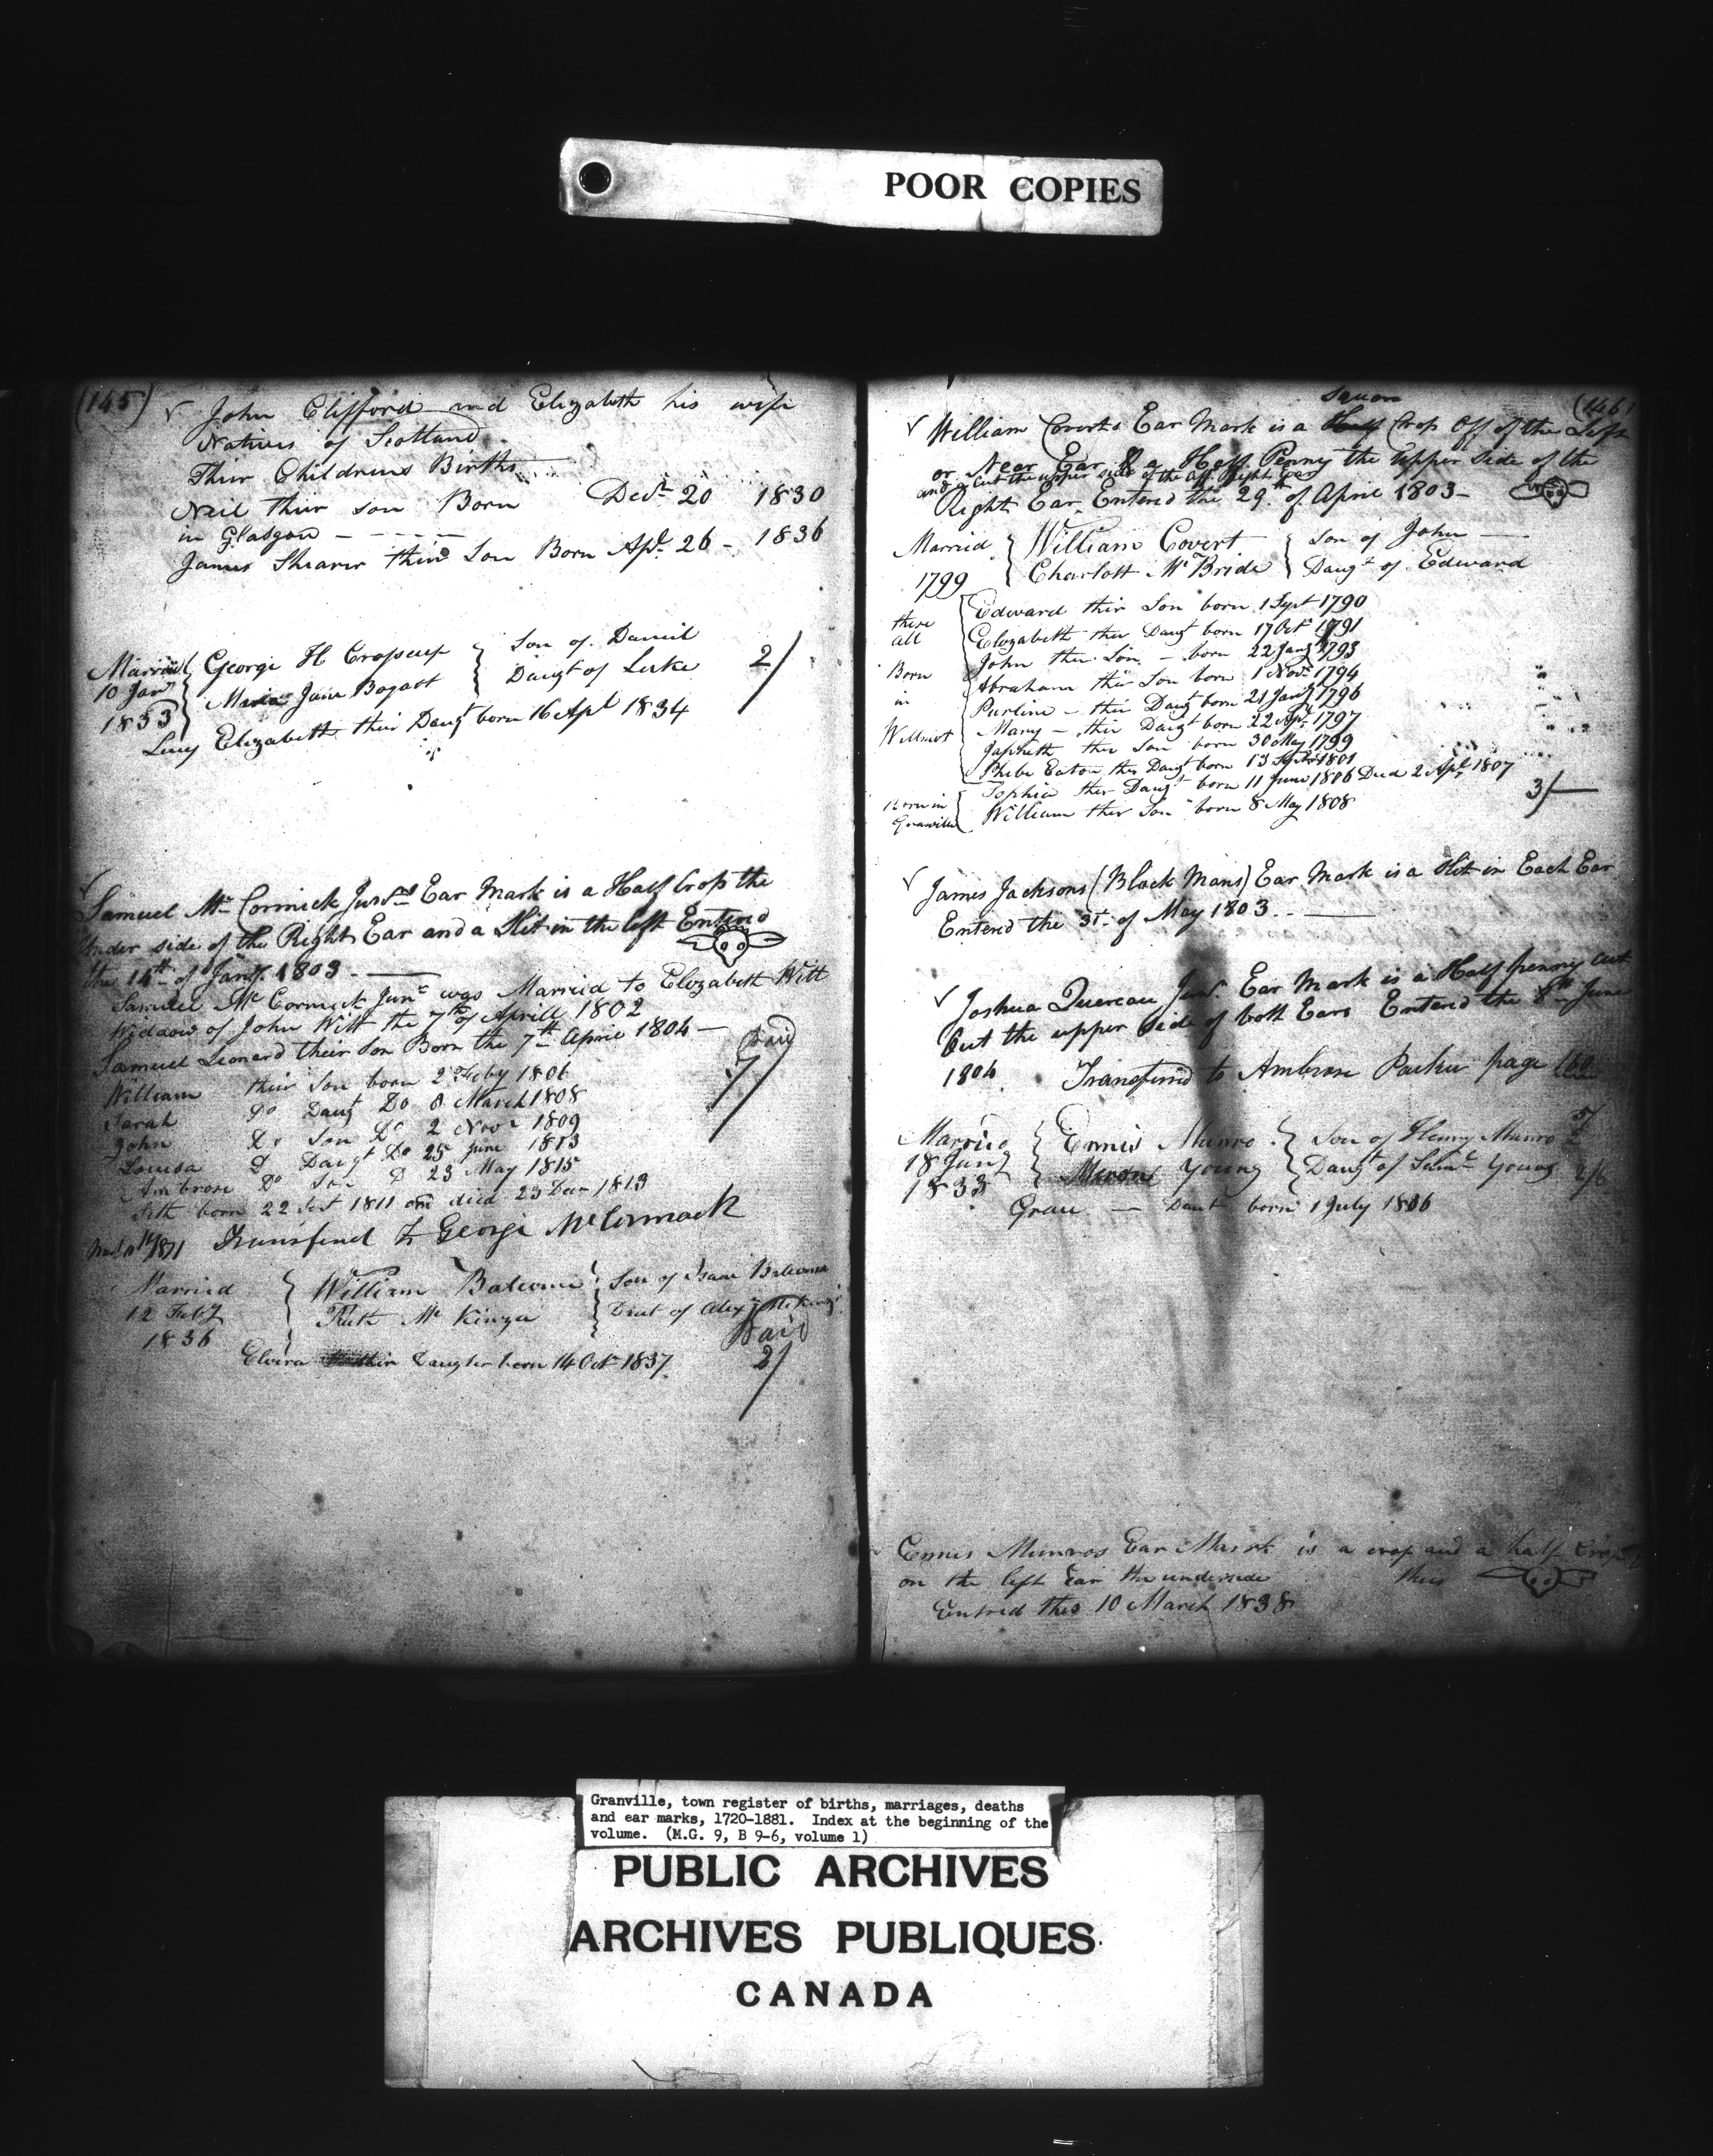 POOR COPIES
(145)
✓ John Clifford and Elizabeth his wife
Natives of Scotland
Thier Childrens Births
Neil thier son Born Decr 20 1830
in Glasgow - - - - -
James Shearer thier Son Born Apl 26 - 1836
Married George H Cropsey Son of Daniel
10 Jany Maria Jane Bogart Daugt of Luke 2/
1833
Lucy Elizabeth their Daugt born 16 Apl 1834
✓
Samuel Mc Cormick Junr Ear Mark is a Half Crop the
Under side of the Right Ear and a Slit in the left Enterd
the 14th of Jany. 1803 -
Samuel Mc Cormick Junr was Married to Elizabeth Witt
Widdow of John Witt the 7th of Aprill 1802
Samuel Leonard their Son Born the 7th April 1804 - Paid
William their Son born 2 Feby 1806 7/
Sarah Do Daugt Do 8 March 1808
John Do Son Do 2 Novr 1809
Louisa Do Daugt Do 25 June 1813
Ambrose Do Son D 23 May 1815
Seth born 22 1811 and died 23 Decr 1813
1871 Transfered to George McCormack
Married William Balcomi Son of Isaac Balcomi
12 Feby Ruth Mc Kinzie Daut of Alexr
1836 Paid
Elvira thier Daughter born 14 Octr 1837 2/
(146)
Square
✓ William Coverts Ear Mark is a Half Crop Off of the Left
or Near Ear & a Half Penny the Upper Side of the
and a Cut the upper side of the off Right Ear
Right Ear Entered the 29th of April 1803 -
Married William Covert Son of John -
1799 Charlott Mc Bride Daugt of Edward
these Edward thir Son born 1 Sept 1790
all Elizabeth ther Daugt born 17 Octr 1791
John ther Son - born 22 Jany 1793
Born Abraham ther Son born 1 Novr 1794
in Purline - ther Daugt born 21 Jany 1796
Willmot Mary - ther Daugt born 22 Apl 1797
Japheth ther Son born 30 May 1799
Phebe Eaton ther Daugt born 13 Septr 1801
Born in Sophia ther Daugt born 11 June 1806 Died 2 Apl 1807
Granville William ther Son born 8 May 1808 3/-
✓ James Jacksons (Black Mans) Ear Mark is a Slit in Each Ear
Entered the 31t of May 1803 - -
✓ Joshua Quereau Junr. Ear Mark is a Half penny cut
Out the upper Side of both Ears Enterd the 8th June
1804 Transferred to Ambrose Parker page 160
Married Ennis Munro Son of Henry Munro
18 Jany Young Daugt of Saml Young 2/6
1833
- Daut born 1 July 1806
Ennis Munros Ear Mark is a crop and a half Crop
on the left Ear the underside thus
Entred this 10 March 1838
Granville, town register of births, marriages, deaths
and ear marks, 1720-1881. Index at the beginning of the
volume. (M.G. 9, B 9-6, volume 1)
PUBLIC ARCHIVES
ARCHIVES PUBLIQUES
CANADA